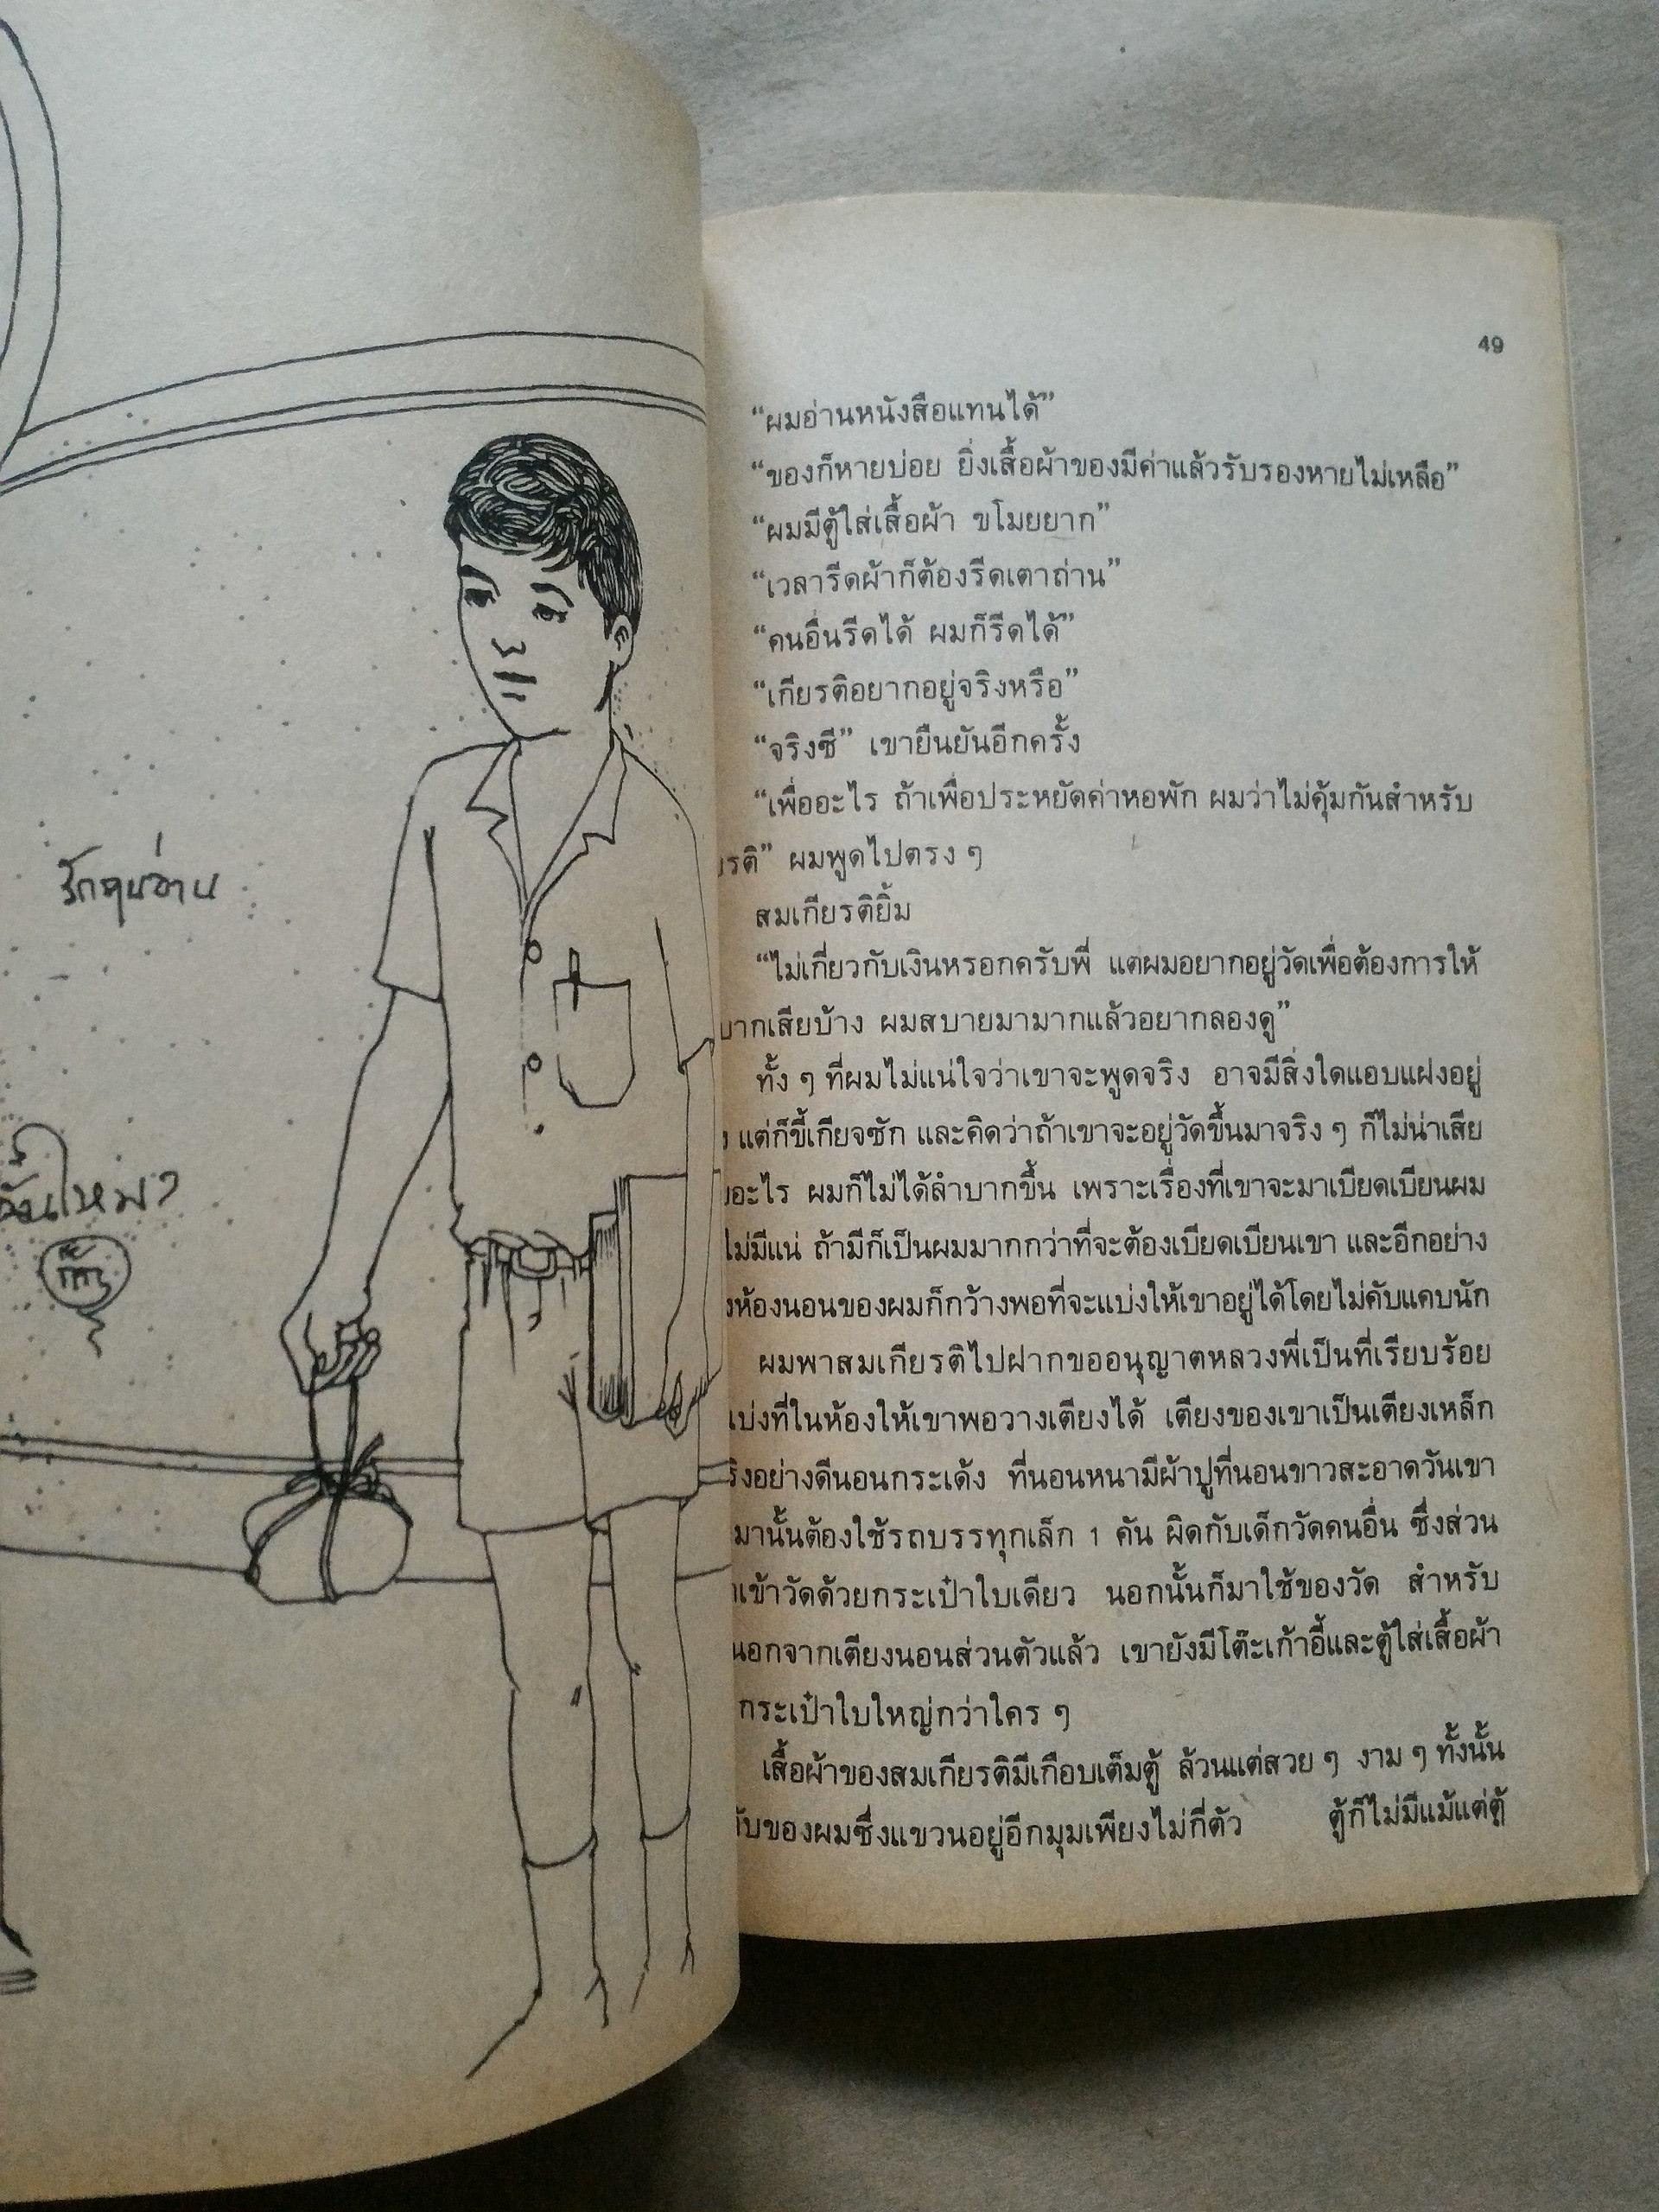 รักคนอ่าน
49
“ผมอ่านหนังสือแทนได้”
“ของก็หายบ่อย ยิ่งเสื้อผ้าของมีค่าแล้วรับรองหายไม่เหลือ”
“ผมมีตู้ใส่เสื้อผ้า ขโมยยาก”
“เวลารีดผ้าก็ต้องรีดเตาถ่าน”
“คนอื่นรีดได้ ผมก็รีดได้”
“เกียรติอยากอยู่จริงหรือ”
“จริงซี” เขายืนยันอีกครั้ง
“เพื่ออะไร ถ้าเพื่อประหยัดค่าหอพัก ผมว่าไม่คุ้มกันสำหรับ
รติ” ผมพูดไปตรง ๆ
สมเกียรติยิ้ม
“ไม่เกี่ยวกับเงินหรอกครับพี่ แต่ผมอยากอยู่วัดเพื่อต้องการให้
บากเสียบ้าง ผมสบายมามากแล้วอยากลองดู”
ทั้ง ๆ ที่ผมไม่แน่ใจว่าเขาจะพูดจริง อาจมีสิ่งใดแอบแฝงอยู่
แต่ก็ขี้เกียจซัก และคิดว่าถ้าเขาจะอยู่วัดขึ้นมาจริง ๆ ก็ไม่น่าเสีย
อะไร ผมก็ไม่ได้ลำบากขึ้น เพราะเรื่องที่เขาจะมาเบียดเบียนผม
ไม่มีแน่ ถ้ามีก็เป็นผมมากกว่าที่จะต้องเบียดเบียนเขา และอีกอย่าง
ห้องนอนของผมก็กว้างพอที่จะแบ่งให้เขาอยู่ได้โดยไม่คับแคบนัก
ผมพาสมเกียรติไปฝากขออนุญาตหลวงพี่เป็นที่เรียบร้อย
แบ่งที่ในห้องให้เขาพอวางเตียงได้ เตียงของเขาเป็นเตียงเหล็ก
ริงอย่างดีนอนกระเด้ง ที่นอนหนามีผ้าปูที่นอนขาวสะอาดวันเขา
มานั้นต้องใช้รถบรรทุกเล็ก 1 คัน ผิดกับเด็กวัดคนอื่น ซึ่งส่วน
เข้าวัดด้วยกระเป๋าใบเดียว นอกนั้นก็มาใช้ของวัด สำหรับ
นอกจากเตียงนอนส่วนตัวแล้ว เขายังมีโต๊ะเก้าอี้และตู้ใส่เสื้อผ้า
กระเป๋าใบใหญ่กว่าใคร ๆ
เสื้อผ้าของสมเกียรติมีเกือบเต็มตู้ ล้วนแต่สวย ๆ งาม ๆ ทั้งนั้น
กับของผมซึ่งแขวนอยู่อีกมุมเพียงไม่กี่ตัว ตู้ก็ไม่มีแม้แต่ตู้